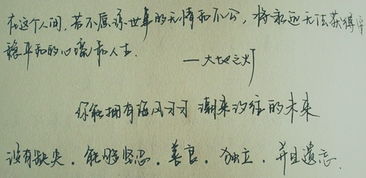 在这个人间,若不原谅世事的无情和不公,将永远无法获得安
稳平和的心境和人生.
——大地之灯
你能拥有海风习习 潮来汐往的未来
没有缺失.能够坚忍.善良.独立.并且遗忘.